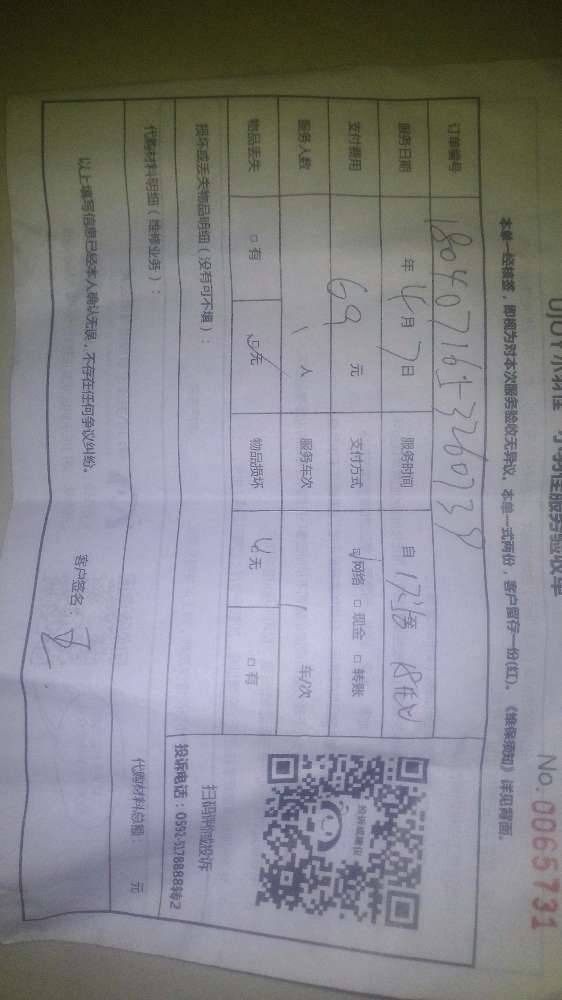 小羽佳服务验收单
No. 0065731
本单一经核签，即视为对本次服务验收无异议。本单一式两份，客户留存一份(红)。《维保须知》详见背面。
订单编号
服务日期 年 4月 7日 服务时间 自
支付费用 69 元 支付方式 网络 □ 现金 □ 转账
服务人数 1 人 服务车次 车/次
物品丢失 □ 有 □ 无 物品损坏 无 □ 有
损坏或丢失物品明细（没有可不填）：
投诉或建议
扫码评价或投诉
投诉电话：0592-5178888转2
代购材料明细（维修业务）：
代购材料总额： 元
以上填写信息已经本人确认无误，不存在任何争议纠纷。
客户签名：